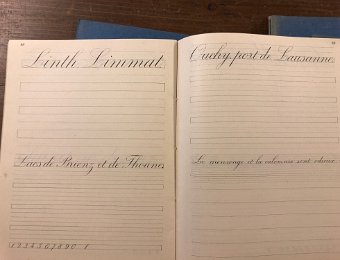 Linth Limmat.
Lacs de Brienz et de Thoune.
1 2 3 4 5 6 7 8 9 0 1
Ouchy, port de Lausanne.
Le mensonge et la calomnie sont odieux.